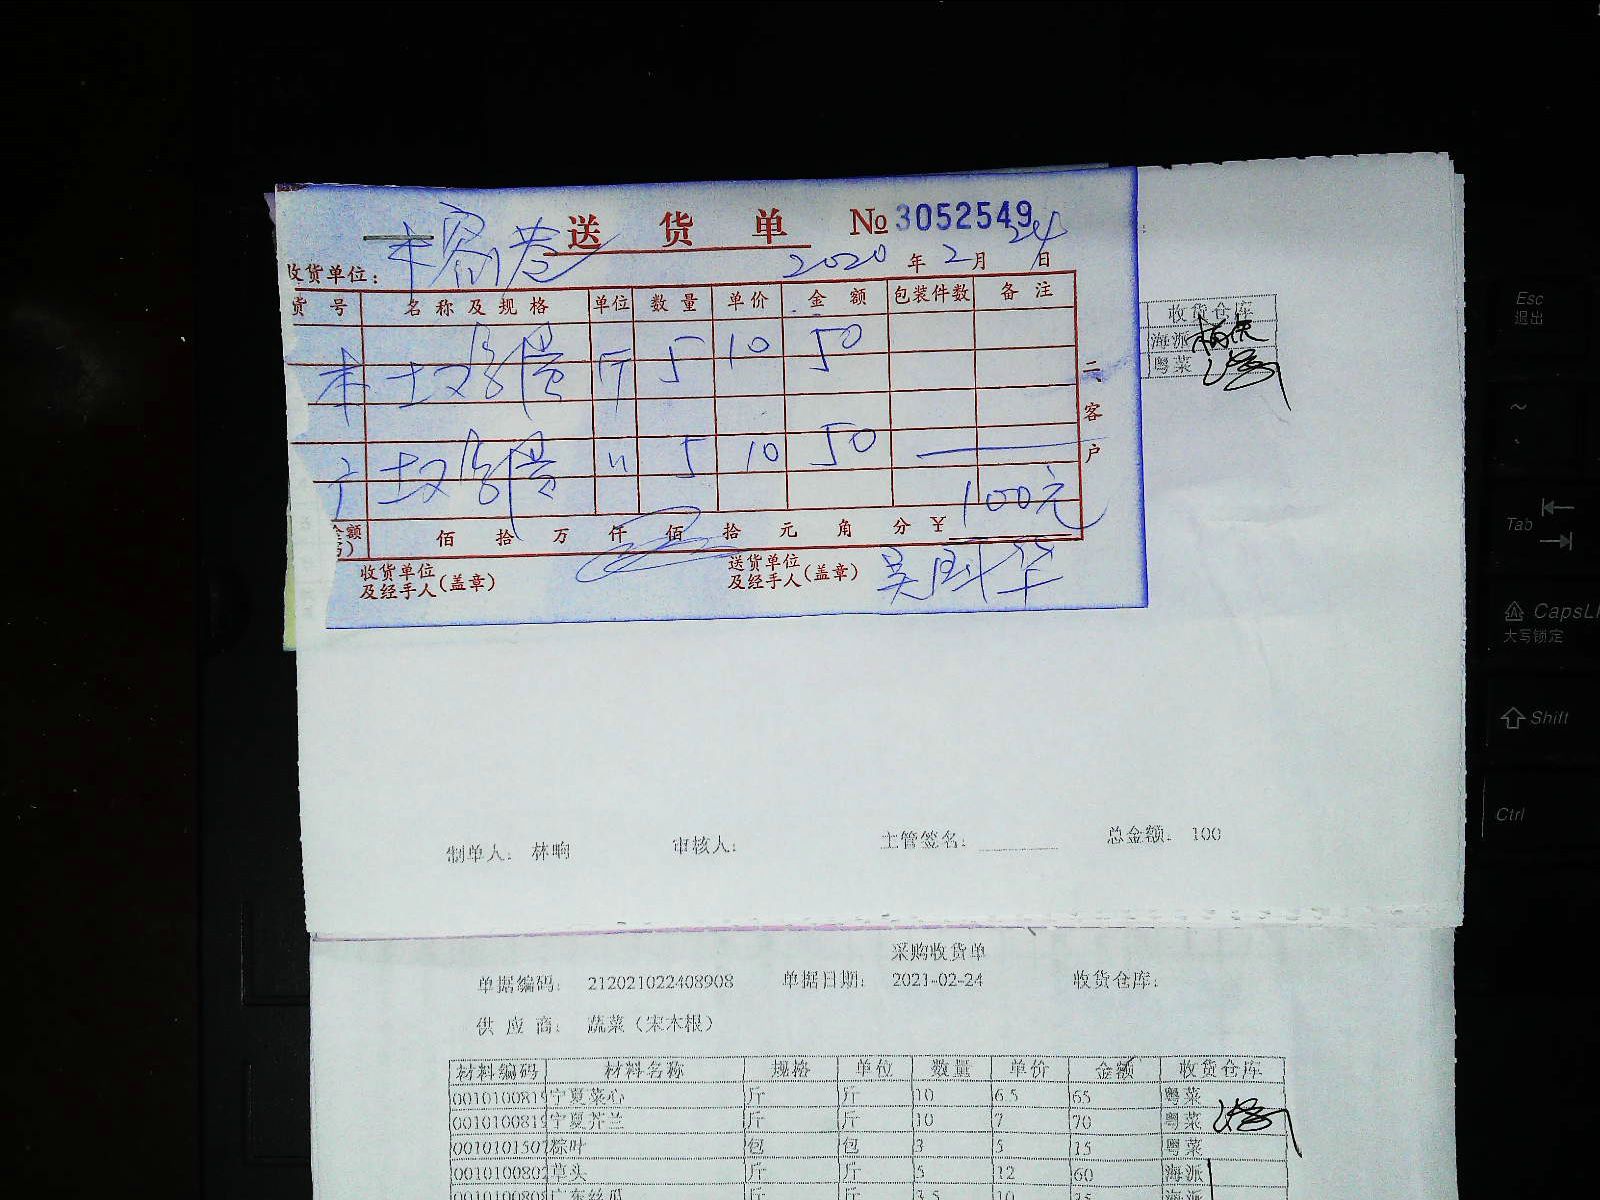 送 货 单 №3052549
收货单位：
2020 年 2 月 24 日
货 号 名 称 及 规 格 单位 数 量 单 价 金 额 包装件数 备 注
本 土 斤 5 10 50
土 〃 5 10 50
佰 拾 万 仟 佰 拾 元 角 分 ￥ 100元
收货单位
及经手人(盖章)
送货单位
及经手人(盖章)
二、客户
收货仓库
海派
粤菜
制单人： 林晌 审核人： 主管签名： 总金额： 100
采购收货单
单据编码： 212021022408908 单据日期： 2021-02-24 收货仓库：
供 应 商： 蔬菜（宋木根）
材料编码 材料名称 规格 单位 数量 单价 金额 收货仓库
001010081 宁夏菜心 斤 斤 10 6.5 65 粤菜
001010081 宁夏芥兰 斤 斤 10 7 70 粤菜
001010150 粽叶 包 包 3 5 15 粤菜
001010080 草头 斤 斤 5 12 60 海派
001010080 广东丝瓜 斤 斤 3.5 10 35 海派
Esc
退出
~
Tab
CapsL
大写锁定
Shift
Ctrl